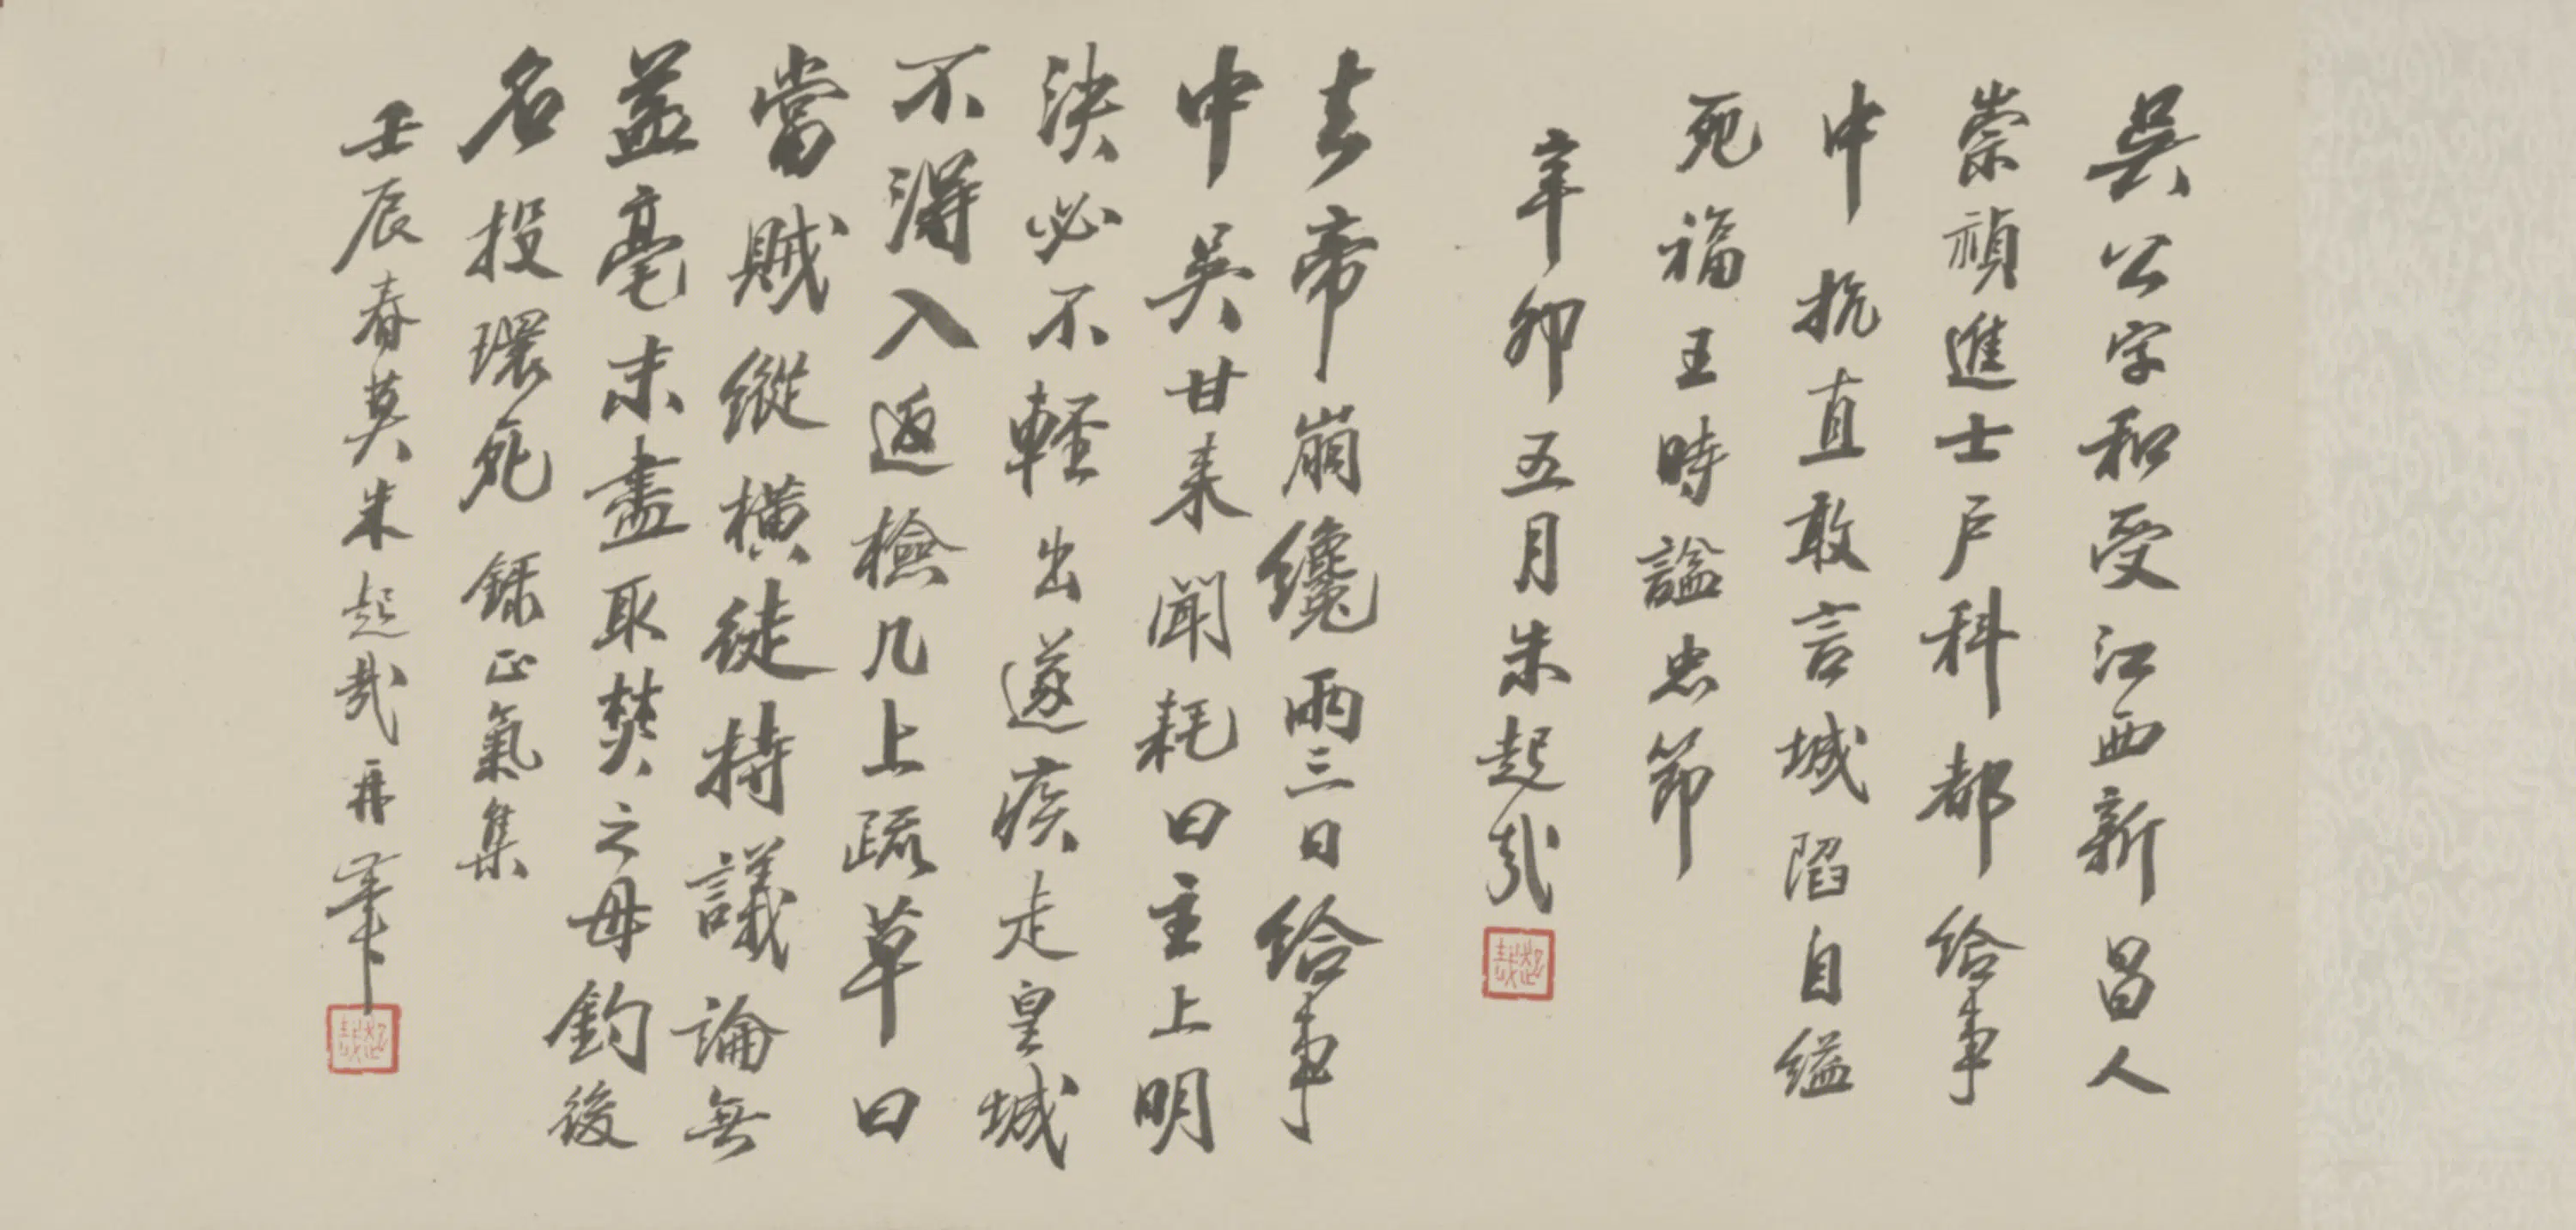 吳公字和受江西新昌人
崇禎進士戶科都給事
中抗直敢言城陷自縊
死福王時謚忠節
辛卯五月朱起哉
去帝崩纔兩三日給事
中吳甘来聞耗曰主上明
决必不輕出遂疾走皇城
不得入返檢几上疏草曰
當賊縱橫徒持議論無
益毫末盡取焚之毋釣後
名投環死 錄正氣集
壬辰春莫朱起哉再筆